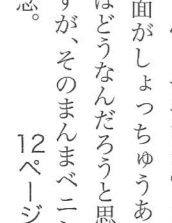 面がしょっちゅうあ
はどうなんだろうと思
すが、そのまんまベニ
12ページ